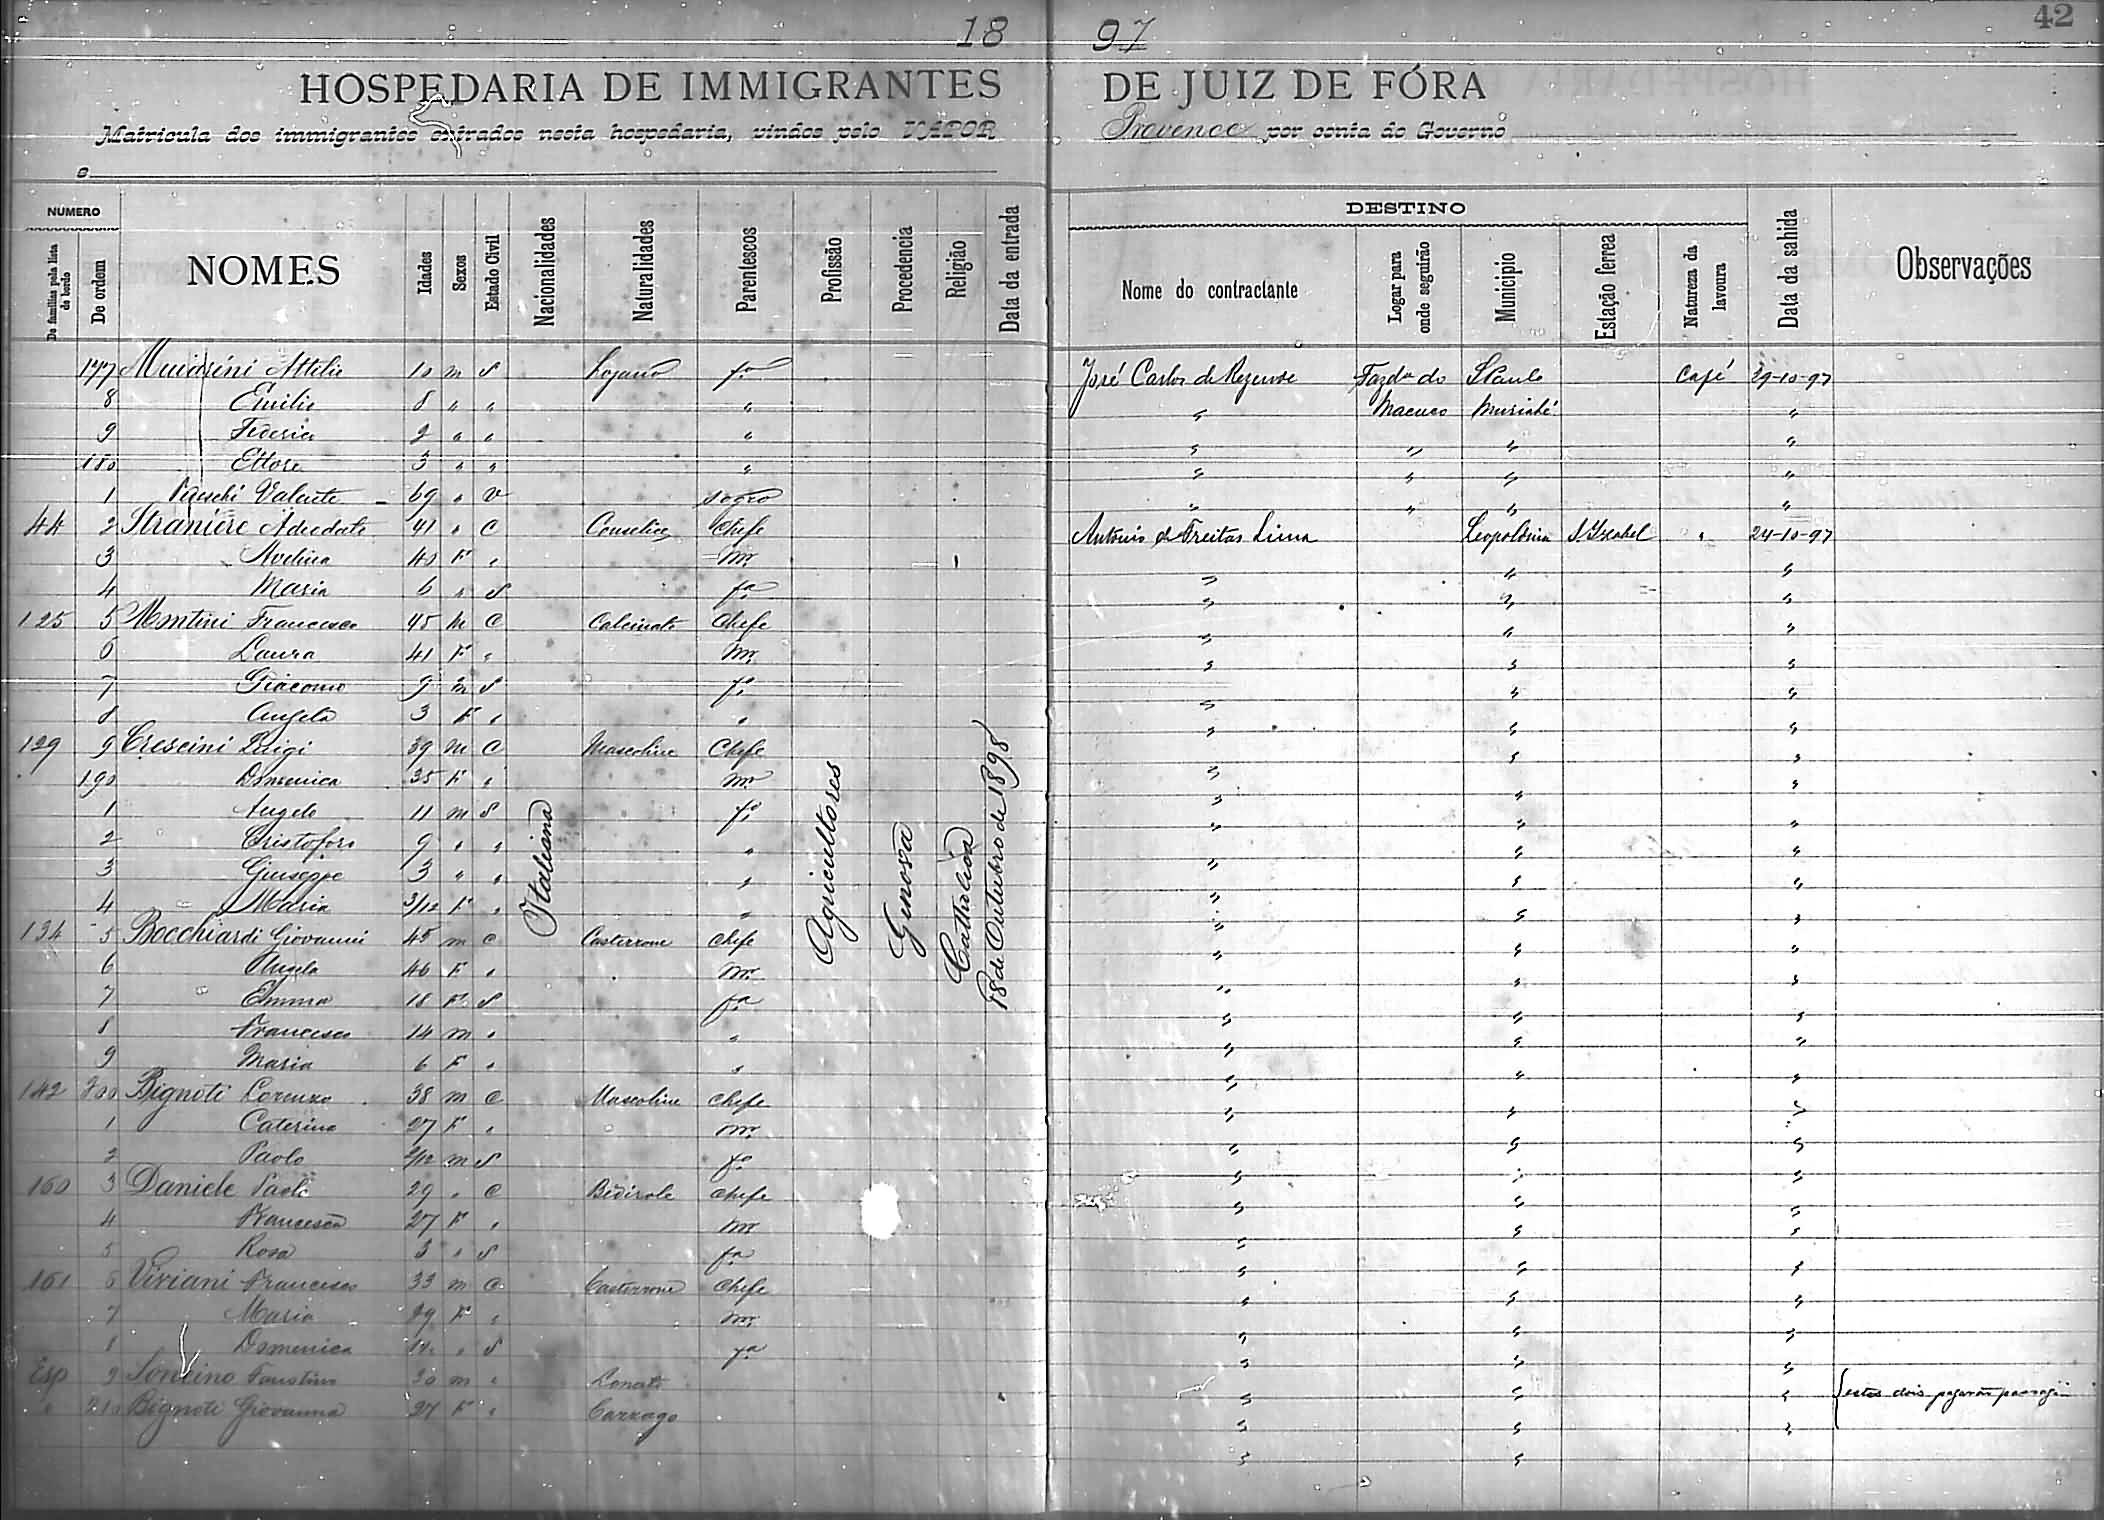 18 97
42
HOSPEDARIA DE IMMIGRANTES DE JUIZ DE FÓRA
Matricula dos immigrantes entrados nesta hospedaria, vindos pelo VAPOR Provence por conta do Governo
e
NUMERO
De familias pela lista de bordo
De ordem
NOMES
Idades
Sexos
Estado Civil
Nacionalidades
Naturalidades
Parentescos
Profissão
Procedencia
Religião
Data da entrada
DESTINO
Nome do contractante
Logar para onde seguirão
Municipio
Estação ferrea
Natureza da lavoura
Data da sahida
Observações
177 Attilio 10 m S Lojano fo José Carlos de Rezende Fazda do S Paulo Café 29-10-97
8 Emilio 8 " " " " Macuco Muriahé "
9 Federica 2 " " " " " " "
180 Ettore 3 " " " " " " "
1 Valente 69 " V sogro " " " "
44 2 Straniere Adeodato 41 " C Conselice Chefe Antonio de Freitas Lima Leopoldina S. Izabel " 24-10-97
3 40 F " mr " " "
4 Maria 6 " S fa " " "
125 5 Montini Francesco 45 m C Calcinato Chefe " " "
6 Laura 41 F " mr " " "
7 Giacomo 9 m S fo " " "
8 Angela 3 F " " " " "
129 9 Crescini Luigi 39 m C Mascoline Chefe " " "
190 Domenica 35 F " mr " " "
1 Angelo 11 m S fo " " "
2 Cristoforo 9 " " " " " "
3 Giuseppe 3 " " " " " "
4 Maria 3/12 F " " " " "
134 5 Bocchiardi Giovanni 45 m C Casterrone Chefe " " "
6 Angela 46 F " mr " " "
7 Emma 18 F S fa " " "
8 Francesco 14 m " " " " "
9 Maria 6 F " " " " "
142 200 Bignoti Lorenzo 38 m C Mascoline Chefe " " "
1 Caterina 27 F " mr " " "
2 Paolo 2/12 m S fo " " "
160 3 Daniele Paolo 29 " C Bedizole Chefe " " "
4 Francesca 27 F " mr " " "
5 Rosa 3 " S fa " " "
161 6 Viviani Francesco 33 m C Casterrone Chefe " " "
7 Maria 29 F " mr " " "
8 Domenica " S fa " " "
Esp 9 Faustino 30 m " Lonato " " " estes dois pagarão passagem
" 210 Bignoti Giovanna 27 F " Carzago " " "
Italiana
Agricultores
Genova
Catholica
18 de Outubro de 1898